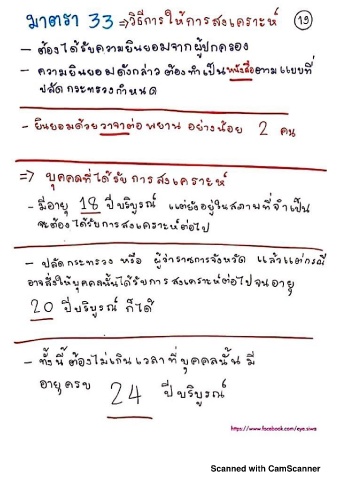 มาตรา 33 ⇒ วิธีการให้การสงเคราะห์ 19
- ต้องได้รับความยินยอมจากผู้ปกครอง
- ความยินยอมดังกล่าว ต้องทำเป็นหนังสือตามแบบที่
ปลัดกระทรวงกำหนด
- ยินยอมด้วยวาจาต่อพยาน อย่างน้อย 2 คน
⇒ บุคคลที่ได้รับการสงเคราะห์
- มีอายุ 18 ปีบริบูรณ์ แต่ยังอยู่ในสภาพที่จำเป็น
จะต้องได้รับการสงเคราะห์ต่อไป
- ปลัดกระทรวง หรือ ผู้ว่าราชการจังหวัด แล้วแต่กรณี
อาจสั่งให้บุคคลนั้นได้รับการสงเคราะห์ต่อไปจนอายุ
20 ปีบริบูรณ์ ก็ได้
- ทั้งนี้ต้องไม่เกินเวลาที่บุคคลนั้นมี
อายุครบ 24 ปีบริบูรณ์
https://www.facebook.com/eye.siwa
Scanned with CamScanner